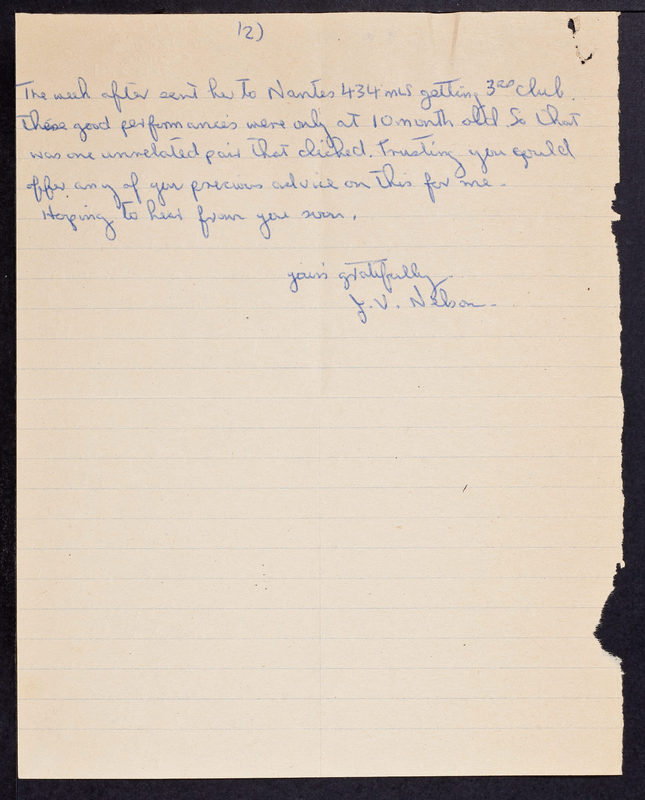 12)
The week after sent her to Nantes 434 mls getting 3rd club.
These good performances were only at 10 month old. So that
was one unrelated pair that clicked. Trusting you could
offer any of your precious advice on this for me.
Hoping to hear from you soon,
yours gratefully
J. V. Nelson